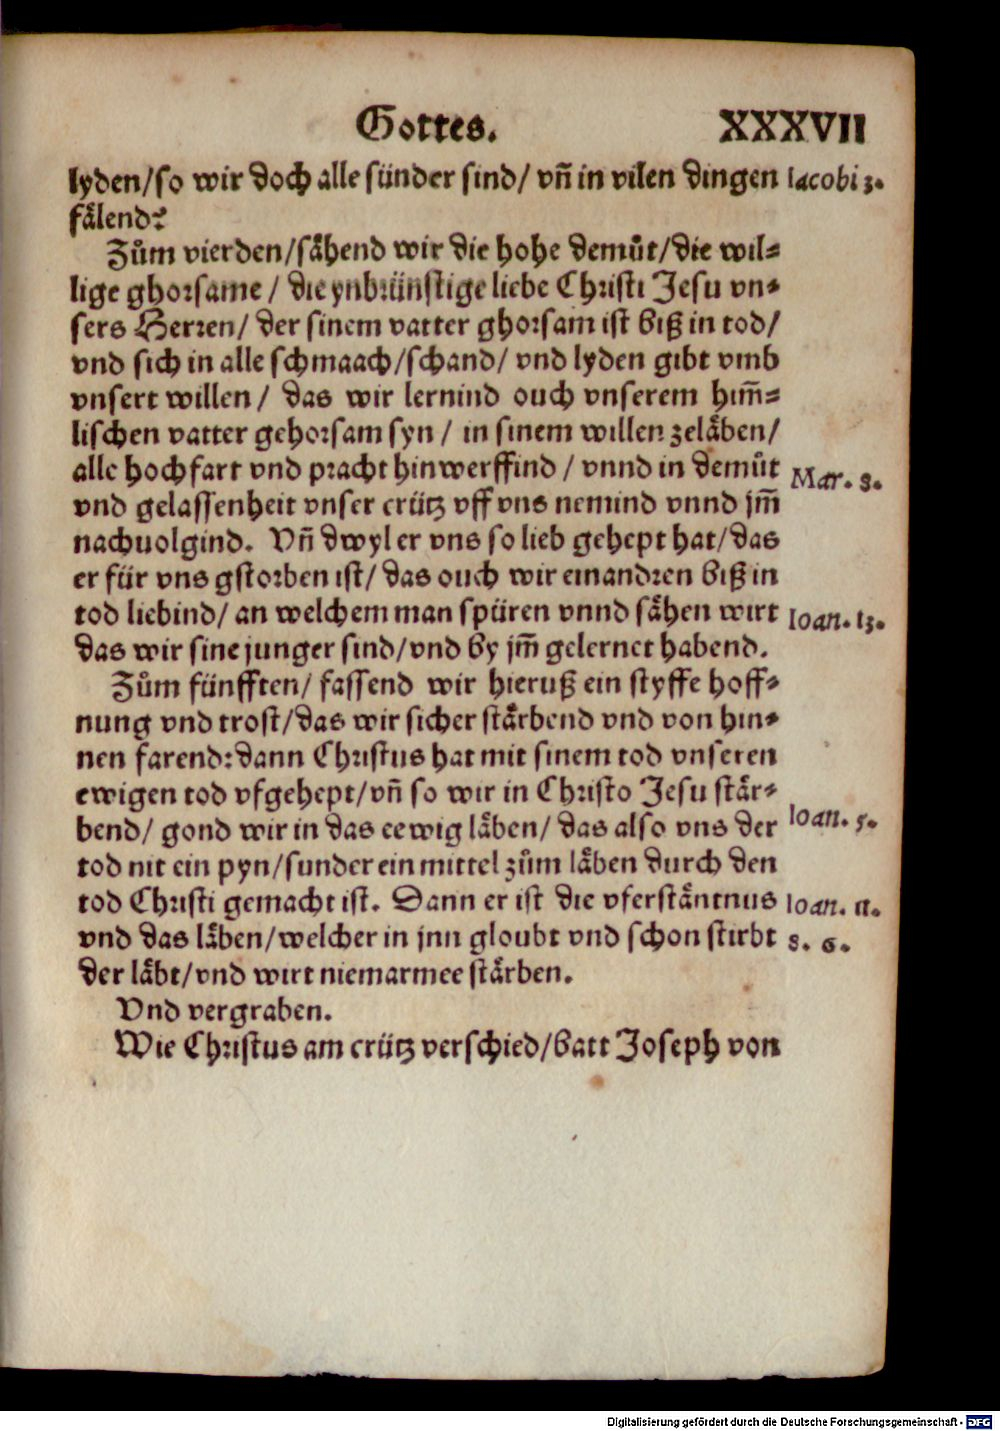 Gottes. XXXVII
lyden/so wir doch alle sünder sind/ vn̄ in vilen dingen Iacobi 3.
fälend?
Zům vierden/sähend wir die hohe demůt/die wil⸗
lige ghorsame/ die ynbrünstige liebe Christi Jesu vn⸗
sers Herren/ der sinem vatter ghorsam ist biß in tod/
vnd sich in alle schmaach/schand/ vnd lyden gibt vmb
vnsert willen/ das wir lernind ouch vnserem him̄⸗
lischen vatter gehorsam syn/ in sinem willen zeläben/
alle hochfart vnd pracht hinwerffind/ vnnd in demůt Mar. 8.
vnd gelassenheit vnser crütz vff vns nemind vnnd jm̄
nachuolgind. Vn̄ dwyl er vns so lieb gehept hat/das
er für vns gstorben ist/ das ouch wir einandren biß in
tod liebind/ an welchem man spüren vnnd sähen wirt Ioan. 13.
das wir sine junger sind/vnd by jm̄ gelernet habend.
Zům fünfften/ fassend wir hieruß ein styffe hoff⸗
nung vnd trost/das wir sicher stärbend vnd von hin⸗
nen farend: dann Christus hat mit sinem tod vnseren
ewigen tod vfgehept/vn̄ so wir in Christo Jesu stär⸗
bend/ gond wir in das eewig läben/ das also vns der Ioan. 5.
tod nit ein pyn/sunder ein mittel zům läben durch den
tod Christi gemacht ist. Dann er ist die vferstäntnus Ioan. 11.
vnd das läben/welcher in jnn gloubt vnd schon stirbt 8. 6.
der läbt/vnd wirt niemarmee stärben.
Vnd vergraben.
Wie Christus am crütz verschied/batt Joseph von
Digitalisierung gefördert durch die Deutsche Forschungsgemeinschaft - DFG